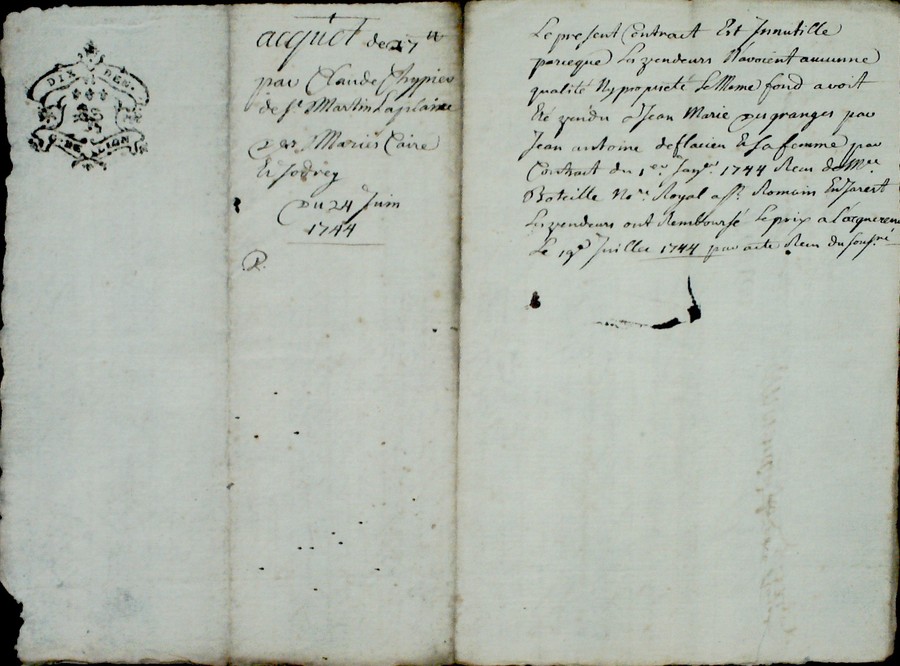 DIX DEN.
G. DE LION
acquet de 27 tt
par Claude Chypier
de St Martin Laplaine
Des Mariés Caire
Et Jodrey
Du 24 Juin
1744
P.
Le present Contrait Est Innutille
parceque Les vendeurs N'avoient auccunne
qualité Ny propriété Le Meme fond avoit
Eté vendu a Jean Marie Desgranges par
Jean antoine Et sa femme par
Contrait du 1er Janr. 1744 Receu de Me
Boteille Nore Royal a St Romain En Jarest
Les vendeurs ont Remboursé Le prix a Lacquereur
Le 19e Juillet 1744 par acte Receu du Sousné